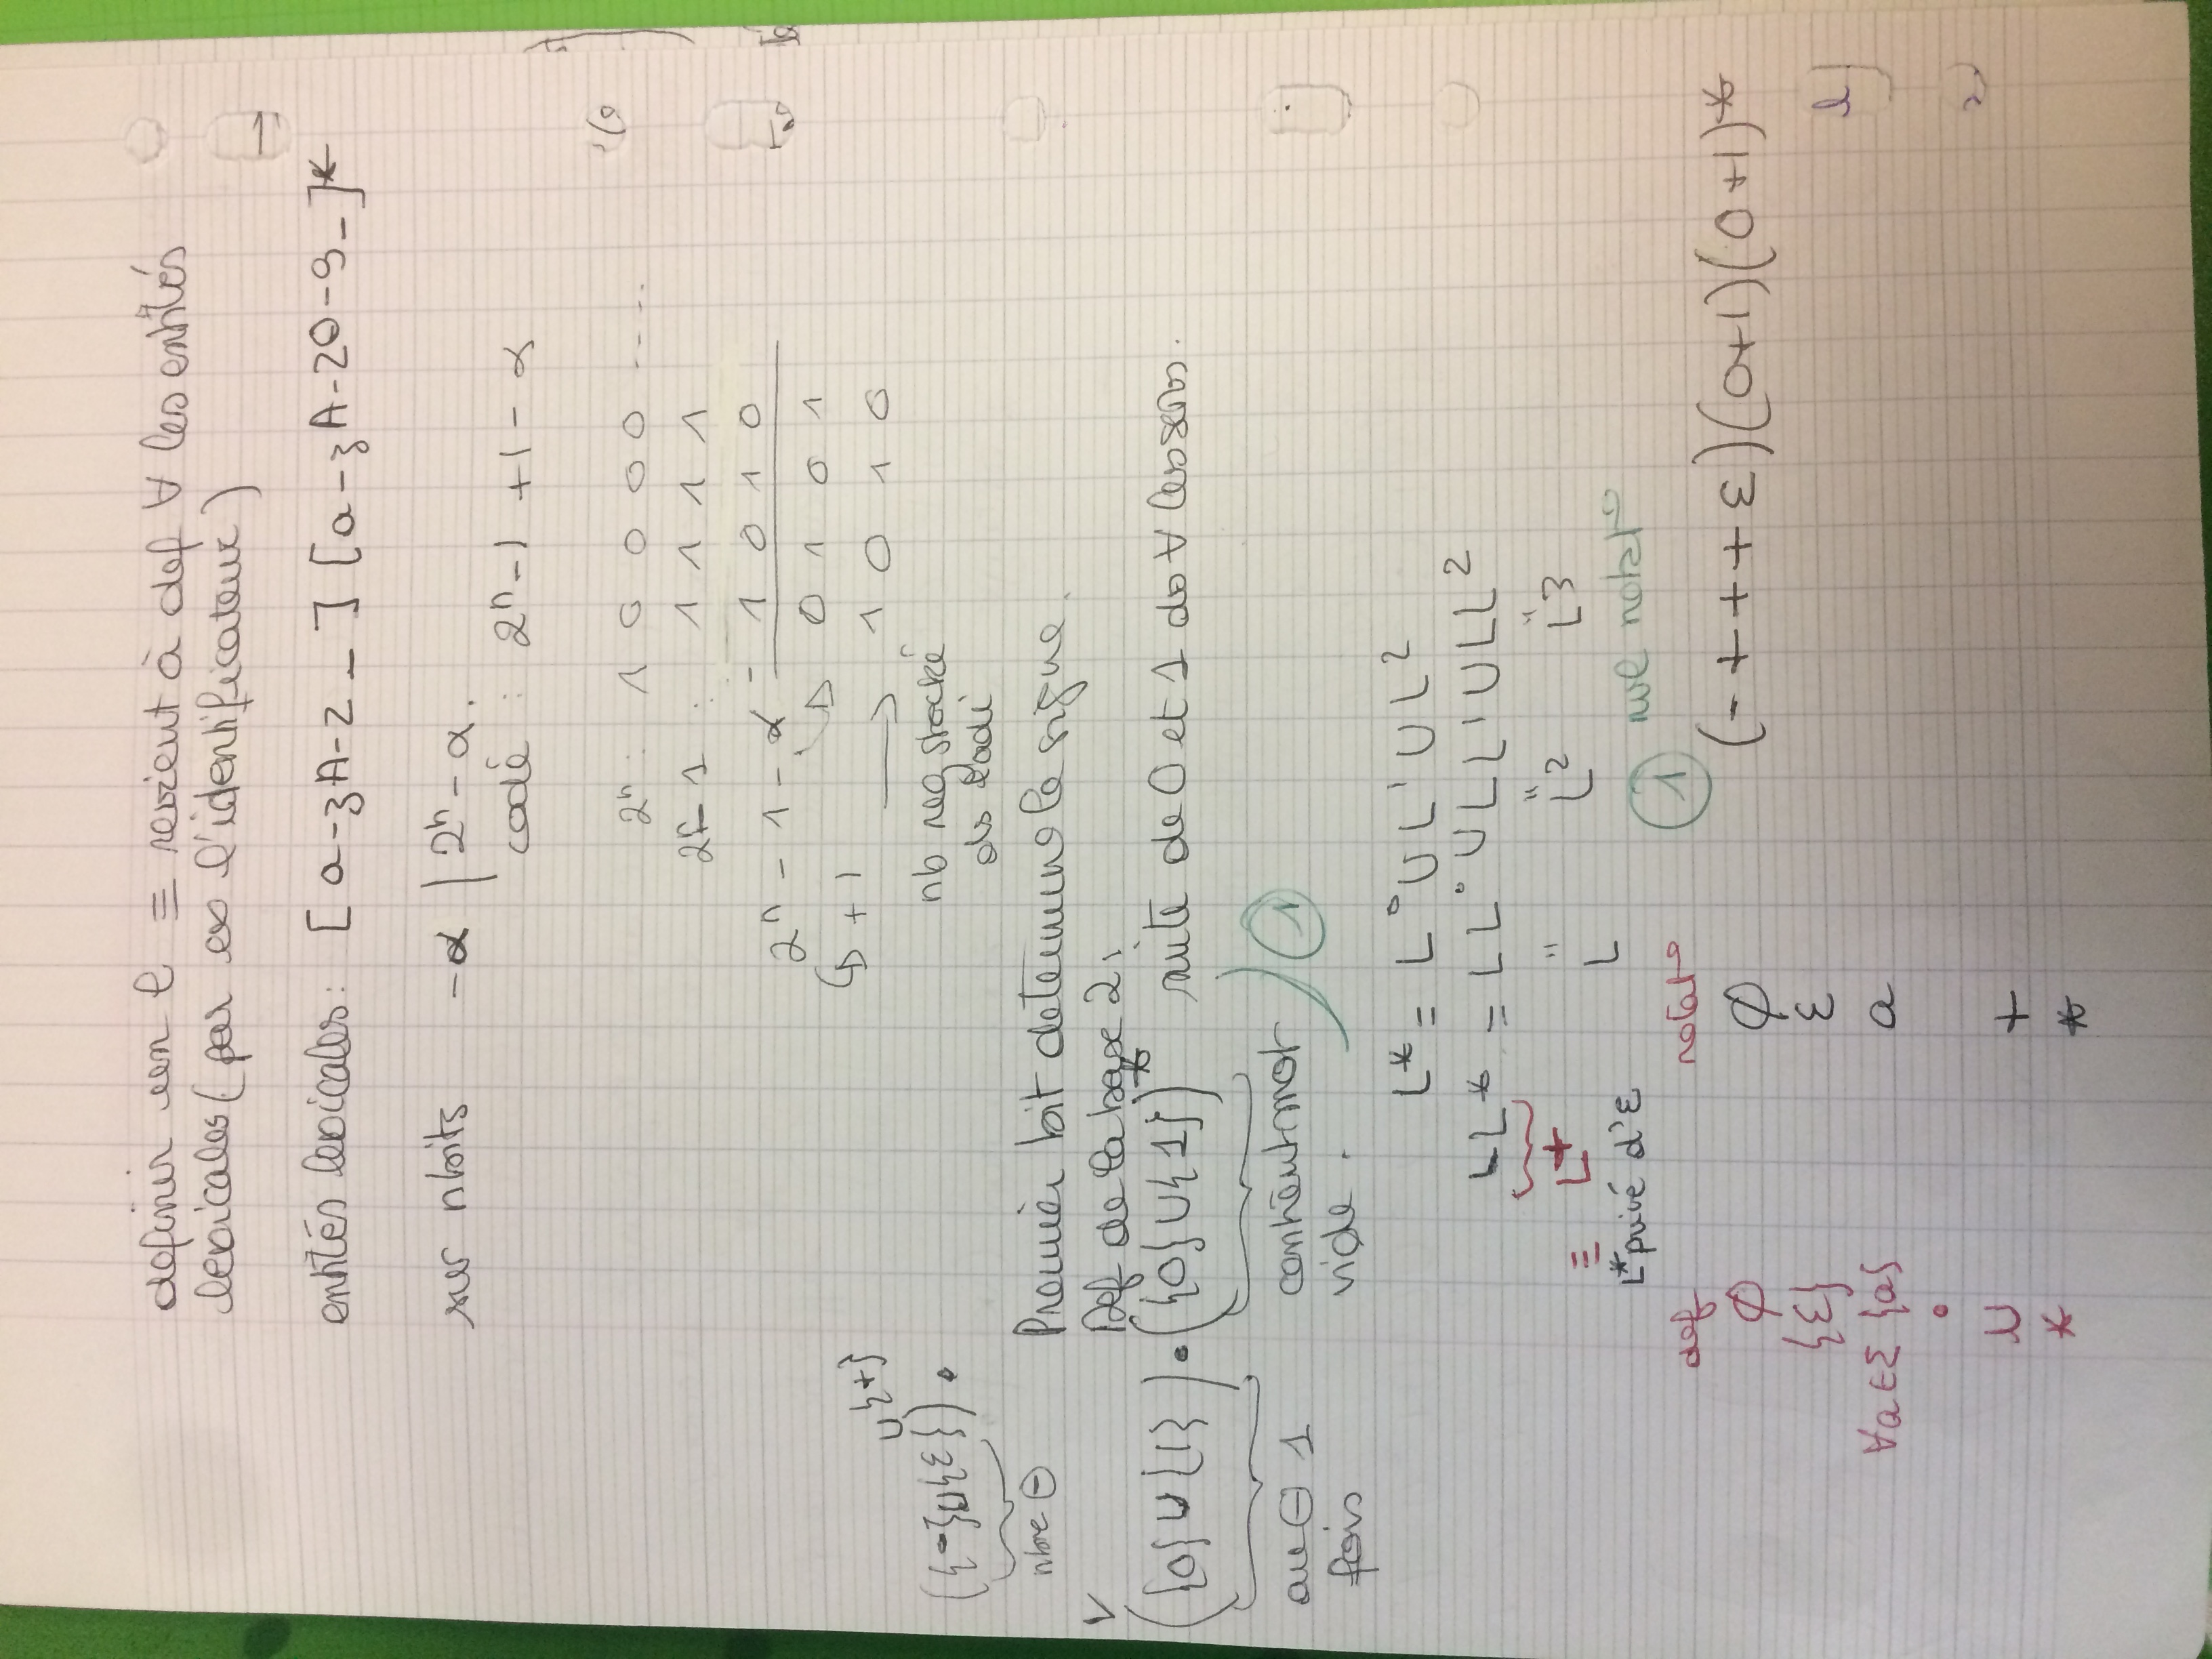 definir un l ≡ revient à def ∀ les entités
lexicales (par ex l'identificateur)
entités lexicales : [a-zA-Z_][a-zA-Z0-9_]*
sur n bits -α | 2ⁿ - α.
codé : 2ⁿ-1 +1 - α
2ⁿ : 1 0 0 0 0 .....
2ⁿ-1 : 1 1 1 1
- 1 0 1 0
2ⁿ - 1 - α
0 1 0 1
+ 1
→ 1 0 1 0
nb neg stocké
ds l'adi
∪{+}
({-}∪{ε}) •
nbre ⊖
Premier bit determine le signe.
Def de la base 2 :
({0}∪{1})•({0}∪{1})* suite de 0 et 1 ds ∀ les sens.
au ⊖ 1 fois
contient mot vide.
①
L* = L⁰ ∪ L¹ ∪ L²
LL* = LL⁰ ∪ LL¹ ∪ LL²
" " "
L L² L³
≡ L⁺
L* privé d'ε
① nvl notat°
(- + + + ε)(0+1)(0+1)*
def notat°
∅ ∅
{ε} ε
∀a∈Σ {a} a
•
∪ +
* *